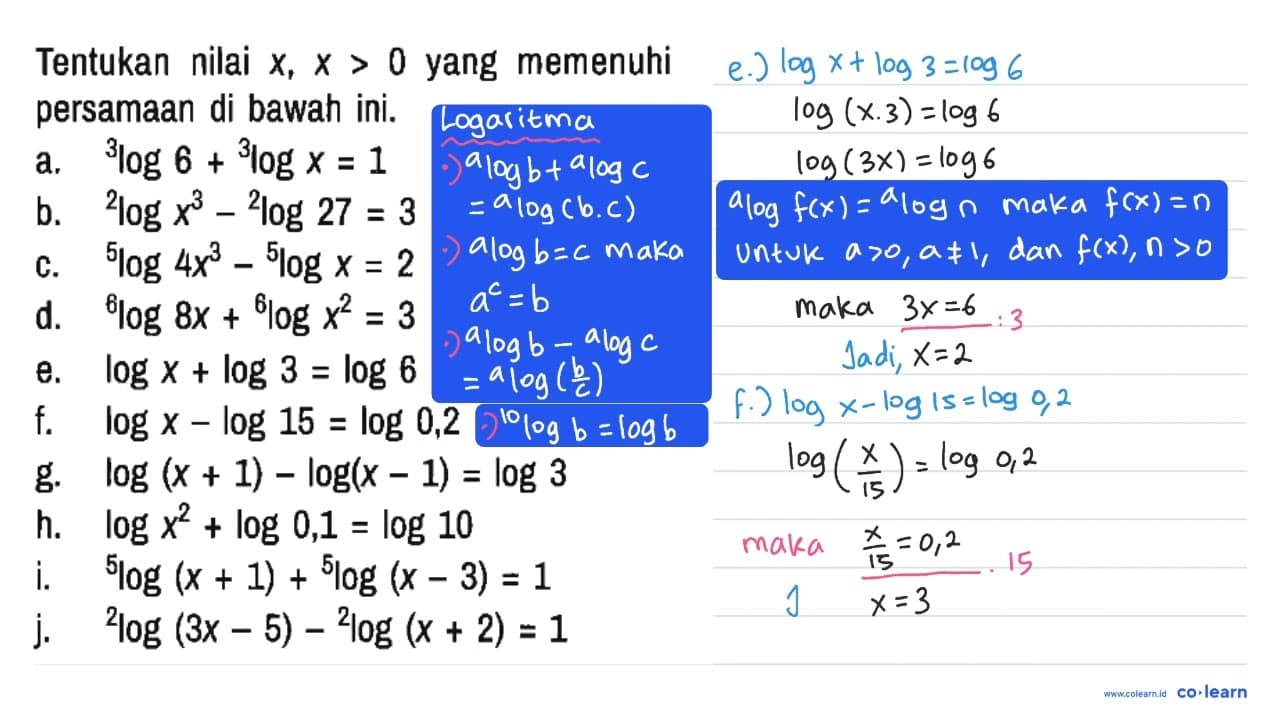 Tentukan nilai x, x > 0 yang memenuhi
persamaan di bawah ini.
a. ³log 6 + ³log x = 1
b. ²log x³ – ²log 27 = 3
c. ⁵log 4x³ – ⁵log x = 2
d. ⁶log 8x + ⁶log x² = 3
e. log x + log 3 = log 6
f. log x – log 15 = log 0,2
g. log (x + 1) – log(x – 1) = log 3
h. log x² + log 0,1 = log 10
i. ⁵log (x + 1) + ⁵log (x – 3) = 1
j. ²log (3x – 5) – ²log (x + 2) = 1
Logaritma
·) ᵃlog b + ᵃlog c
= ᵃlog (b.c)
·) ᵃlog b = c maka
aᶜ = b
·) ᵃlog b – ᵃlog c
= ᵃlog (b/c)
·) ¹⁰log b = log b
e.) log x + log 3 = log 6
log (x.3) = log 6
log (3x) = log 6
ᵃlog f(x) = ᵃlog n maka f(x) = n
untuk a > 0, a ≠ 1, dan f(x), n > 0
maka 3x = 6
: 3
Jadi, x = 2
f.) log x – log 15 = log 0,2
log (x/15) = log 0,2
maka x/15 = 0,2
. 15
J x = 3
www.colearn.id co·learn